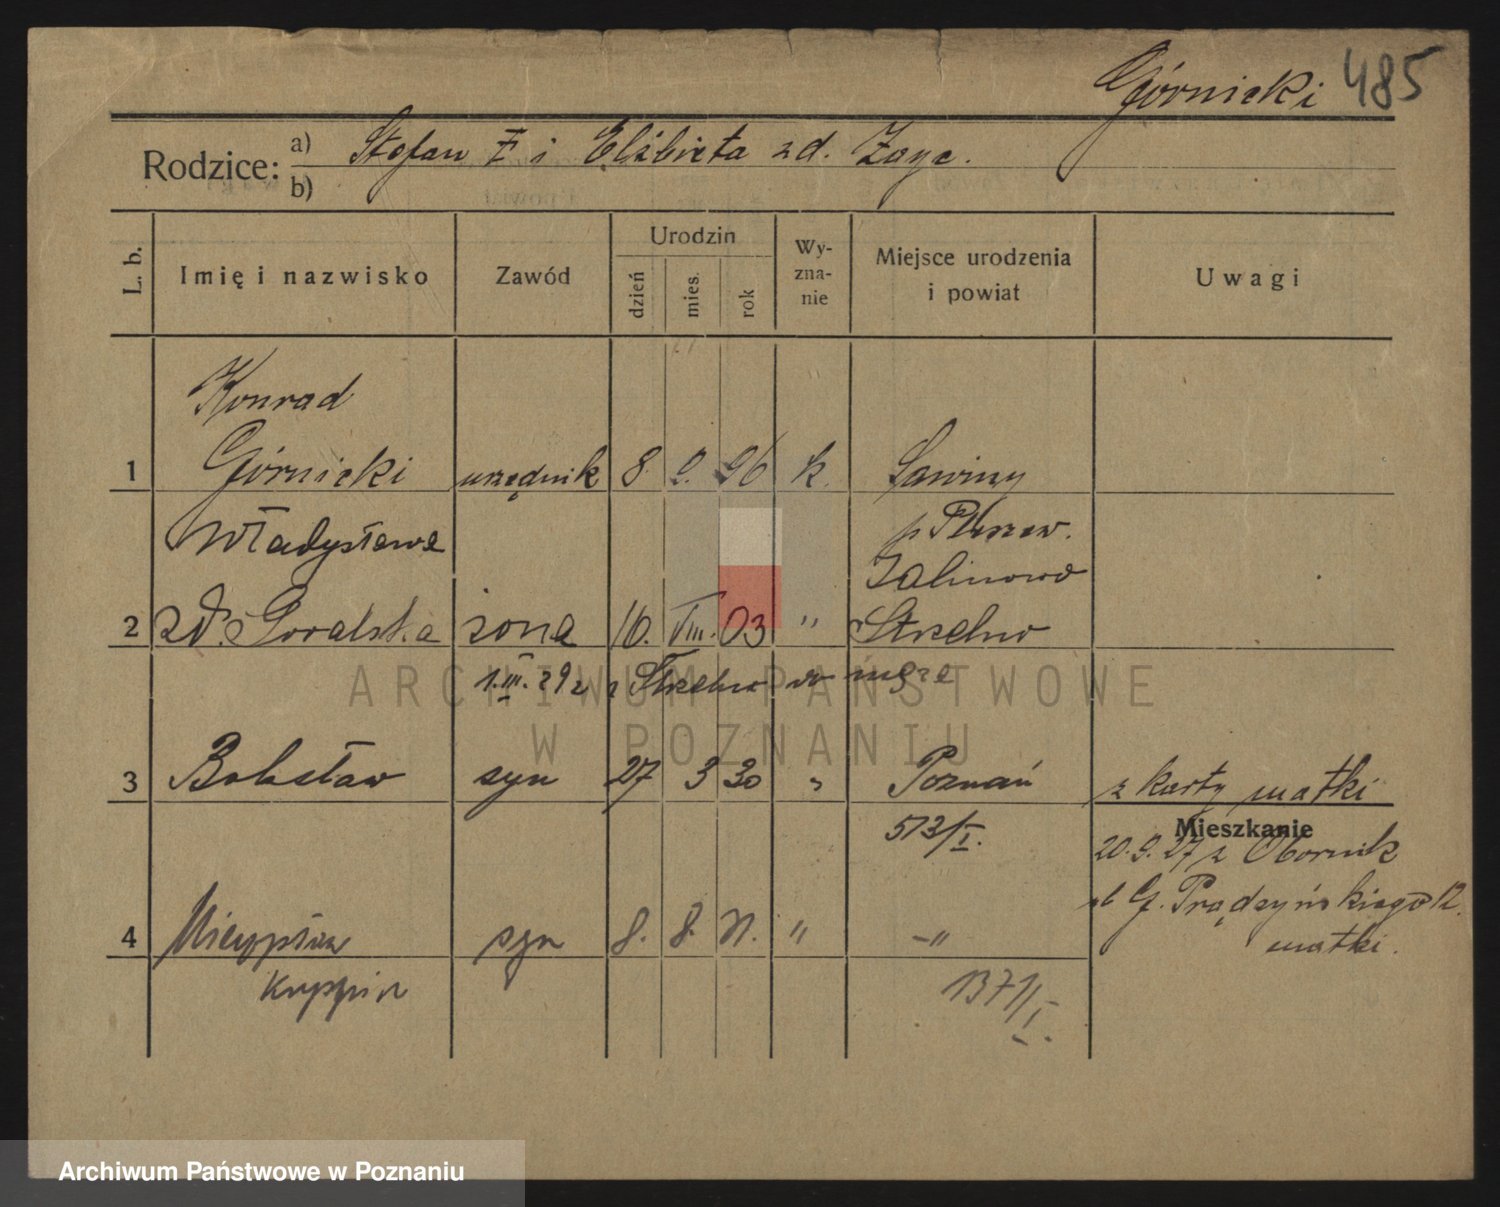 Górnicki 485
Rodzice: a) Stefan i Elżbieta zd. Zając.
b)
L. b. Imię i nazwisko Zawód Urodzin dzień mies. rok Wy-zna-nie Miejsce urodzenia i powiat Uwagi
Konrad
1 Górnicki urzędnik 8. 9. 96 k.
Władysława p. Pleszew.
2 zd. Goralska żona 10. VIII. 03 " Strzelno
1. III. 29 z Strzelno do męża
3 Bolesław syn 27 3 30 " Poznań z karty matki
513/I. Mieszkanie
20. 9. 27 z Obornik
G. Prądzyńskiego 12
4 Mieczysław syn 8. 8. " -"- matki.
1371/I.
ARCHIWUM PAŃSTWOWE
W POZNANIU
Archiwum Państwowe w Poznaniu